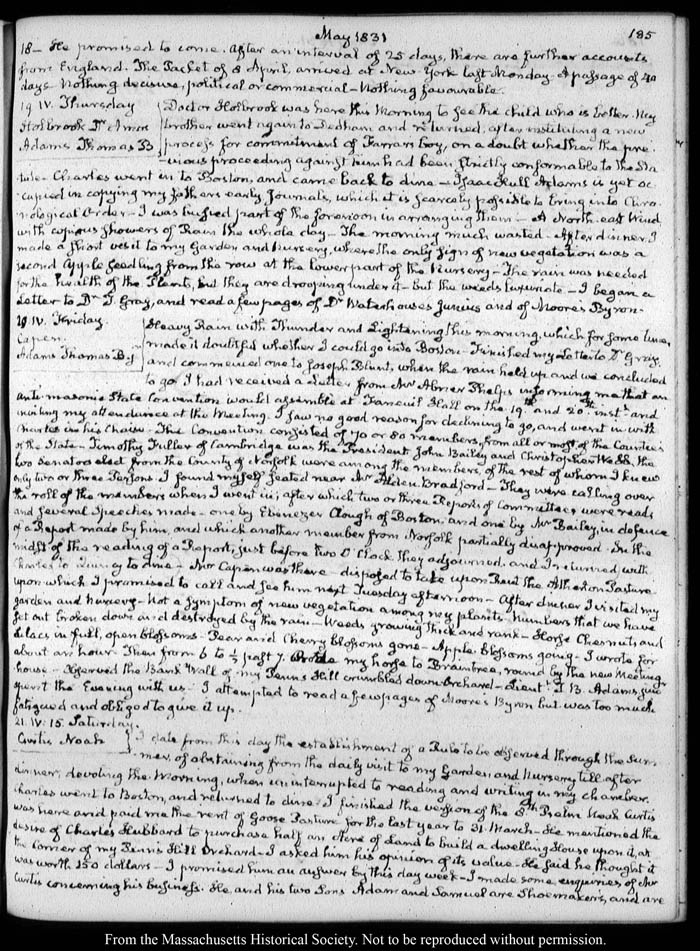 May 1831
185
18— He promised to come. After an interval of 25 days, there are further accounts
from England. The Packet of 8 April, arrived at New-York last Monday. A passage of 40
days. Nothing decisive, political or commercial—Nothing favourable.
19 IV. Thursday
Holbrook Dr Amos
Adams Thomas B
Doctor Holbrook was here this Morning to see the child who is better. My
brother went again to Dedham and returned, after instituting a new
process for commitment of Farrars boy, on a doubt whether the pre-
vious proceeding against him had been strictly conformable to the Sta-
tute. Charles went in to Boston, and came back to dine—Isaac Hull Adams is yet oc-
cupied in copying my fathers early Journals, which it is scarcely possible to bring into Chro-
nological Order—I was busied part of the forenoon in arranging them—A North-east Wind
with copious showers of Rain the whole day—The morning much wasted—After dinner, I
made a short visit to my Garden and Nursery, where the only sign of new vegetation was a
second apple seedling from the row at the lower part of the Nursery—The rain was needed
for the health of the Plants, but they are drooping under it—but the weeds luxuriate—I began a
Letter to Dr T. Gray, and read a few pages of Dr Waterhouses Junius and of Moore's Byron.
20 IV. Friday.
Capen.
Adams Thomas B.
Heavy Rain with Thunder and Lightening this morning, which for some time,
made it doubtful whether I could go into Boston—Finished my Letter to Dr Gray,
and commenced one to Joseph Blunt, when the rain held up and we concluded
to go. I had received a Letter from Mr Abner Phelps informing me that an
Antimasonic State Convention would assemble at Faneuil Hall on the 19th and 20th inst. and
inviting my attendance at the Meeting. I saw no good reason for declining to go, and went in with
Charles in his Chaise—The Convention consisted of 70 or 80 members, from all or most of the Counties
of the State—Timothy Fuller of Cambridge was the President. John Bailey and Christopher Webb, the
two Senators elect from the County of Norfolk were among the members, of the rest of whom I knew
only two or three Persons. I found myself seated near Mr Alden Bradford—They were calling over
the roll of the members when I went in; after which two or three Reports of Committees were read
and several Speeches made—one by Ebenezer Clough of Boston, and one by Mr Bailey, in defence
of a Report made by him, and which another member from Norfolk partially disapproved. In the
midst of the reading of a Report, just before two O'Clock they adjourned, and I returned with
Charles to Quincy to dine—Mr Capen was there—disposed to take upon Rent the Atherton Pasture
upon which I promised to call and see him next Tuesday afternoon—After dinner I visited my
garden and nursery—Not a symptom of new vegetation among my plants. Numbers that we have
set out broken down and destroyed by the rain—Weeds growing thick and rank—Horse Chesnuts, and
Lilacs in full, open blossoms—Pear and Cherry blossoms gone—Apple blossoms going—I wrote for
about an hour. Then from 6 to ½ past 7. Rode my horse to Braintree, round by the new Meeting-
house—Observed the Bank Wall of my Penns Hill crumbled down Orchard— T. B. Adams jun
spent the Evening with us. I attempted to read a few pages of Moore's Byron but was too much
fatigued and obliged to give it up.
21. IV: 15. Saturday.
Curtis Noah
I date from this day the establishment of a Rule to be observed through the Sum-
mer, of abstaining from the daily visit to my Garden and Nursery till after
dinner, devoting the Morning, when uninterrupted to reading and writing in my chamber.
Charles went to Boston, and returned to dine. I finished the version of the 8th Psalm. Noah Curtis
was here and paid me the rent of Goose Pasture for the last year to 31 March—He mentioned the
desire of Charles Hubbard to purchase half an Acre of Land to build a dwelling House upon it, at
the Corner of my Penn's Hill Orchard—I asked him his opinion of its value. He said he thought it
was worth 150 dollars—I promised him an answer by this day week—I made some enquiries of Mr
Curtis concerning his business. He and his two Sons Adam and Samuel are Shoemakers, and are
From the Massachusetts Historical Society. Not to be reproduced without permission.